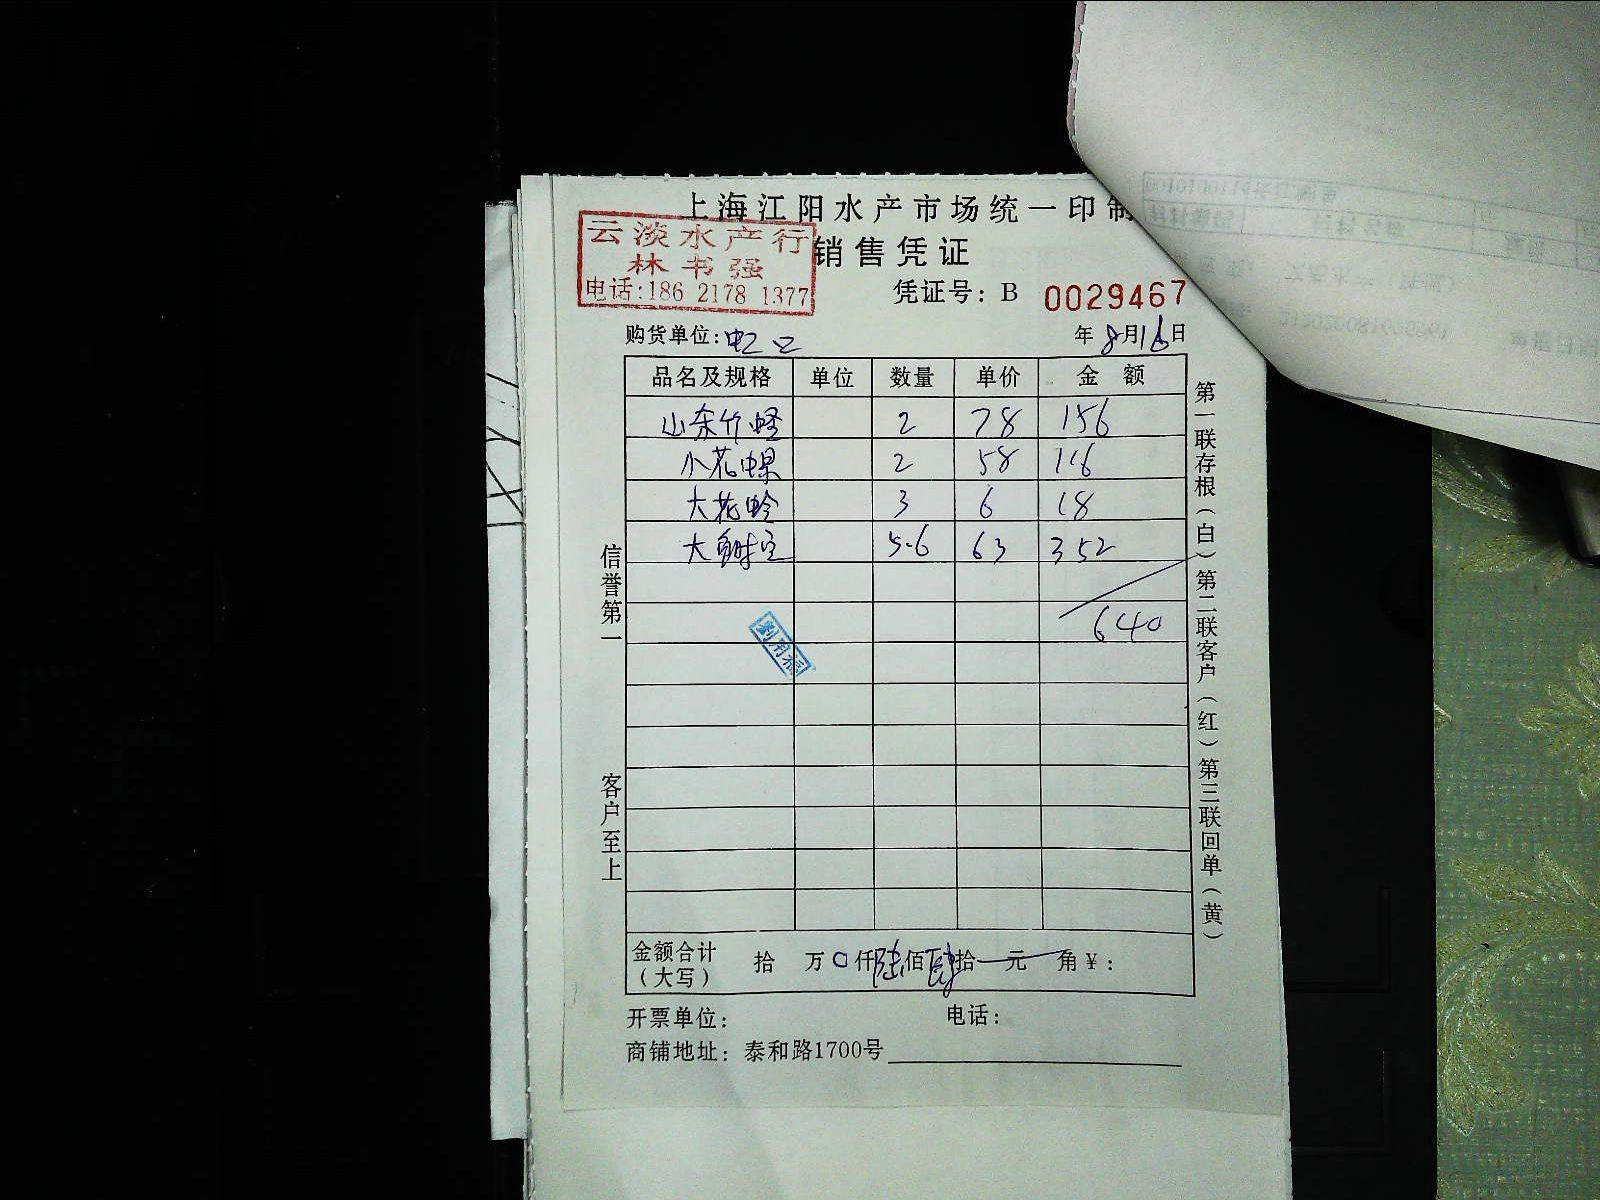 上海江阳水产市场统一印制
云淡水产行
林书强
电话:186 2178 1377
销售凭证
凭证号: B 0029467
购货单位:
年 8月16日
品名及规格 单位 数量 单价 金额
山东竹蛏 2 78 156
小花螺 2 58 116
大花蛤 3 6 18
大 5.6 63 352
640
信誉第一
客户至上
第一联存根(白)第二联客户(红)第三联回单(黄)
金额合计
(大写)
拾 万0仟陆佰肆拾 元 角¥:
开票单位: 电话:
商铺地址: 泰和路1700号